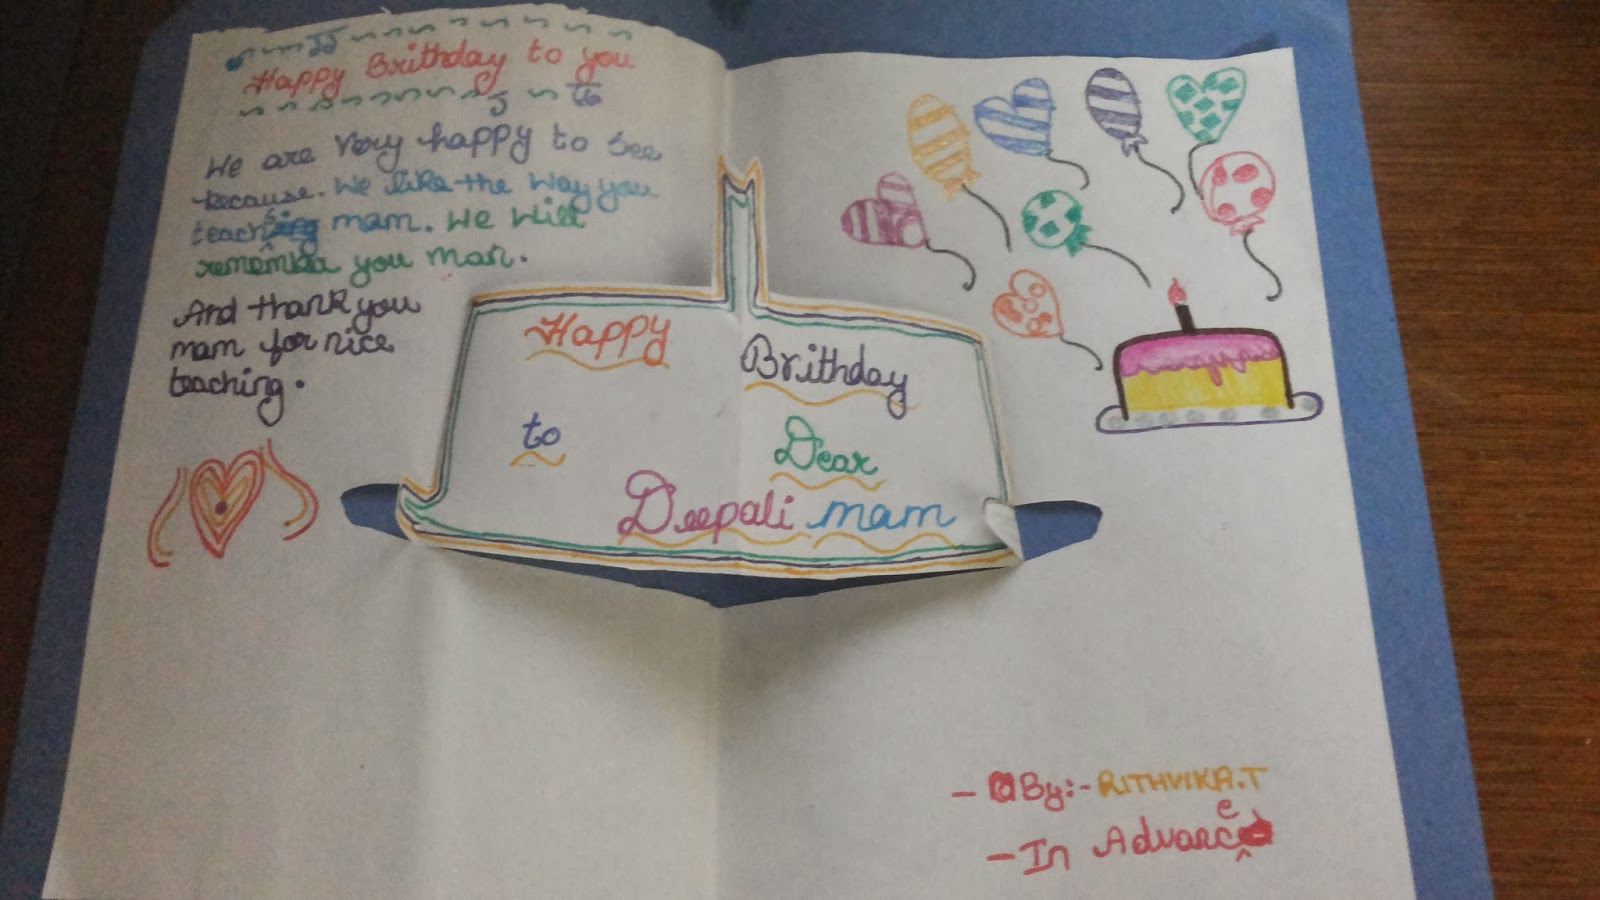 Happy Brithday to you
We are very happy to see
because. We like the way you
teach mam. We will
remember you mam.
And thank you
mam for nice
teaching.
Happy Brithday
to Dear
Deepali mam
- By:- RITHVIKA.T
- In Advance